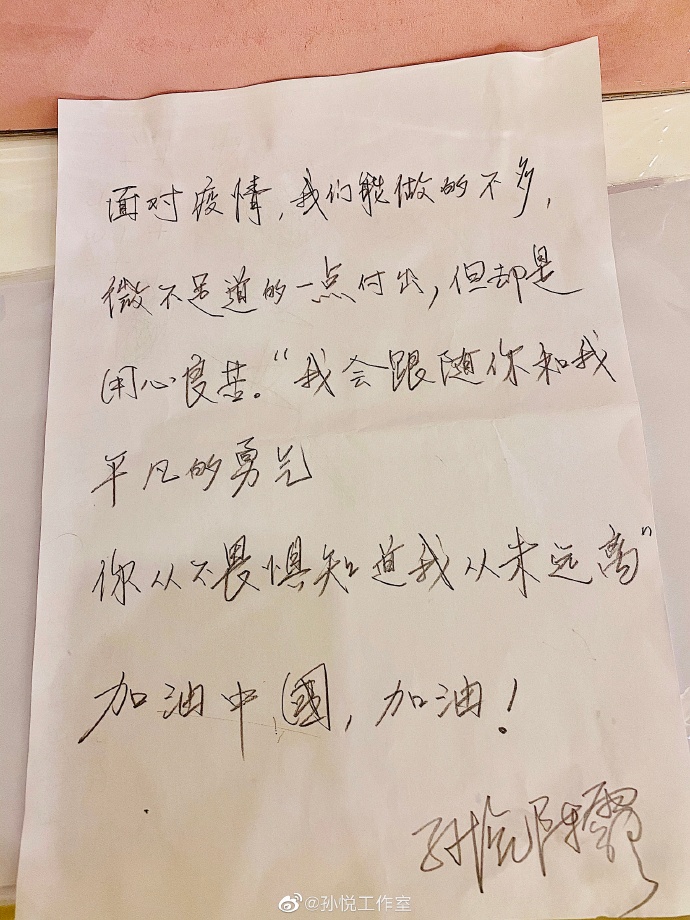 面对疫情，我们能做的不多，
微不足道的一点付出，但却是
用心良苦。“我会跟随你和我
平凡的勇气
你从不畏惧知道我从未远离”
加油中國，加油！
孙悦 陈露
@孙悦工作室